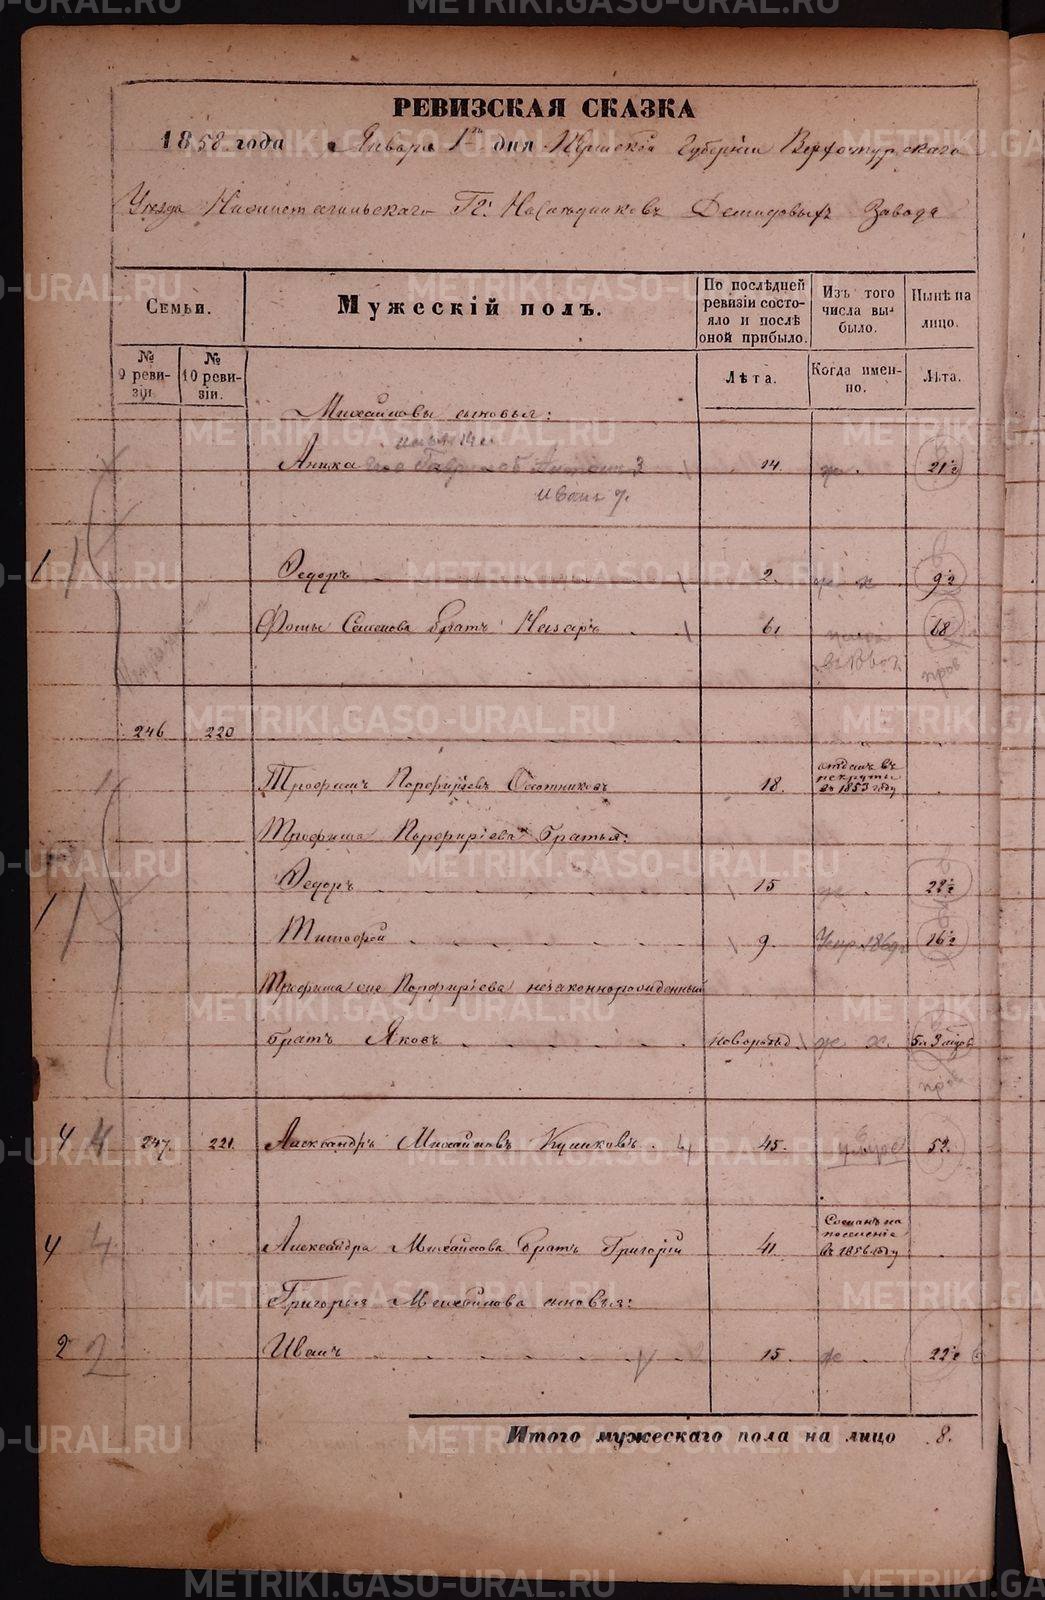 РЕВИЗСКАЯ СКАЗКА
1858 года Января 1го дня Пермской Губернiи Верхотурскаго
Уѣзда Нижнетагильскаго Гг. Наслѣдниковъ Демидовыхъ Завода
Семьи.
Мужескiй полъ.
По послѣдней ревизiи состояло и послѣ оной прибыло.
Изъ того числа выбыло.
Нынѣ на лицо.
№ 9 ревизiи.
№ 10 ревизiи.
Лѣта.
Когда именно.
Лѣта.
Михайловы сыновья:
Аника 14. 21 1/2
Иванъ 7.
Ѳедоръ 2. 9 1/2
Фомы Семенова братъ Назаръ 61 68
пров
246 220
Трофимъ Порфирьевъ Охотниковъ 18. отданъ въ рекруты въ 1853 году
Трофима Порфирiева братья:
Ѳедоръ 15 22 1/2
Тимофей 9. 16 1/2
Трофима же Порфирiева незаконнорожденный
братъ Яковъ новорожд
пров
4 4 247. 221. Александръ Михайловъ Куликовъ 45. умре 52.
4 4 Александра Михайлова братъ Григорiй 41. Сосланъ на поселенiе въ 1856 году
Григорья Михайлова сыновья:
2 2 Иванъ 15. 22 1/2
Итого мужескаго пола на лицо 8.
METRIKI.GASO-URAL.RU